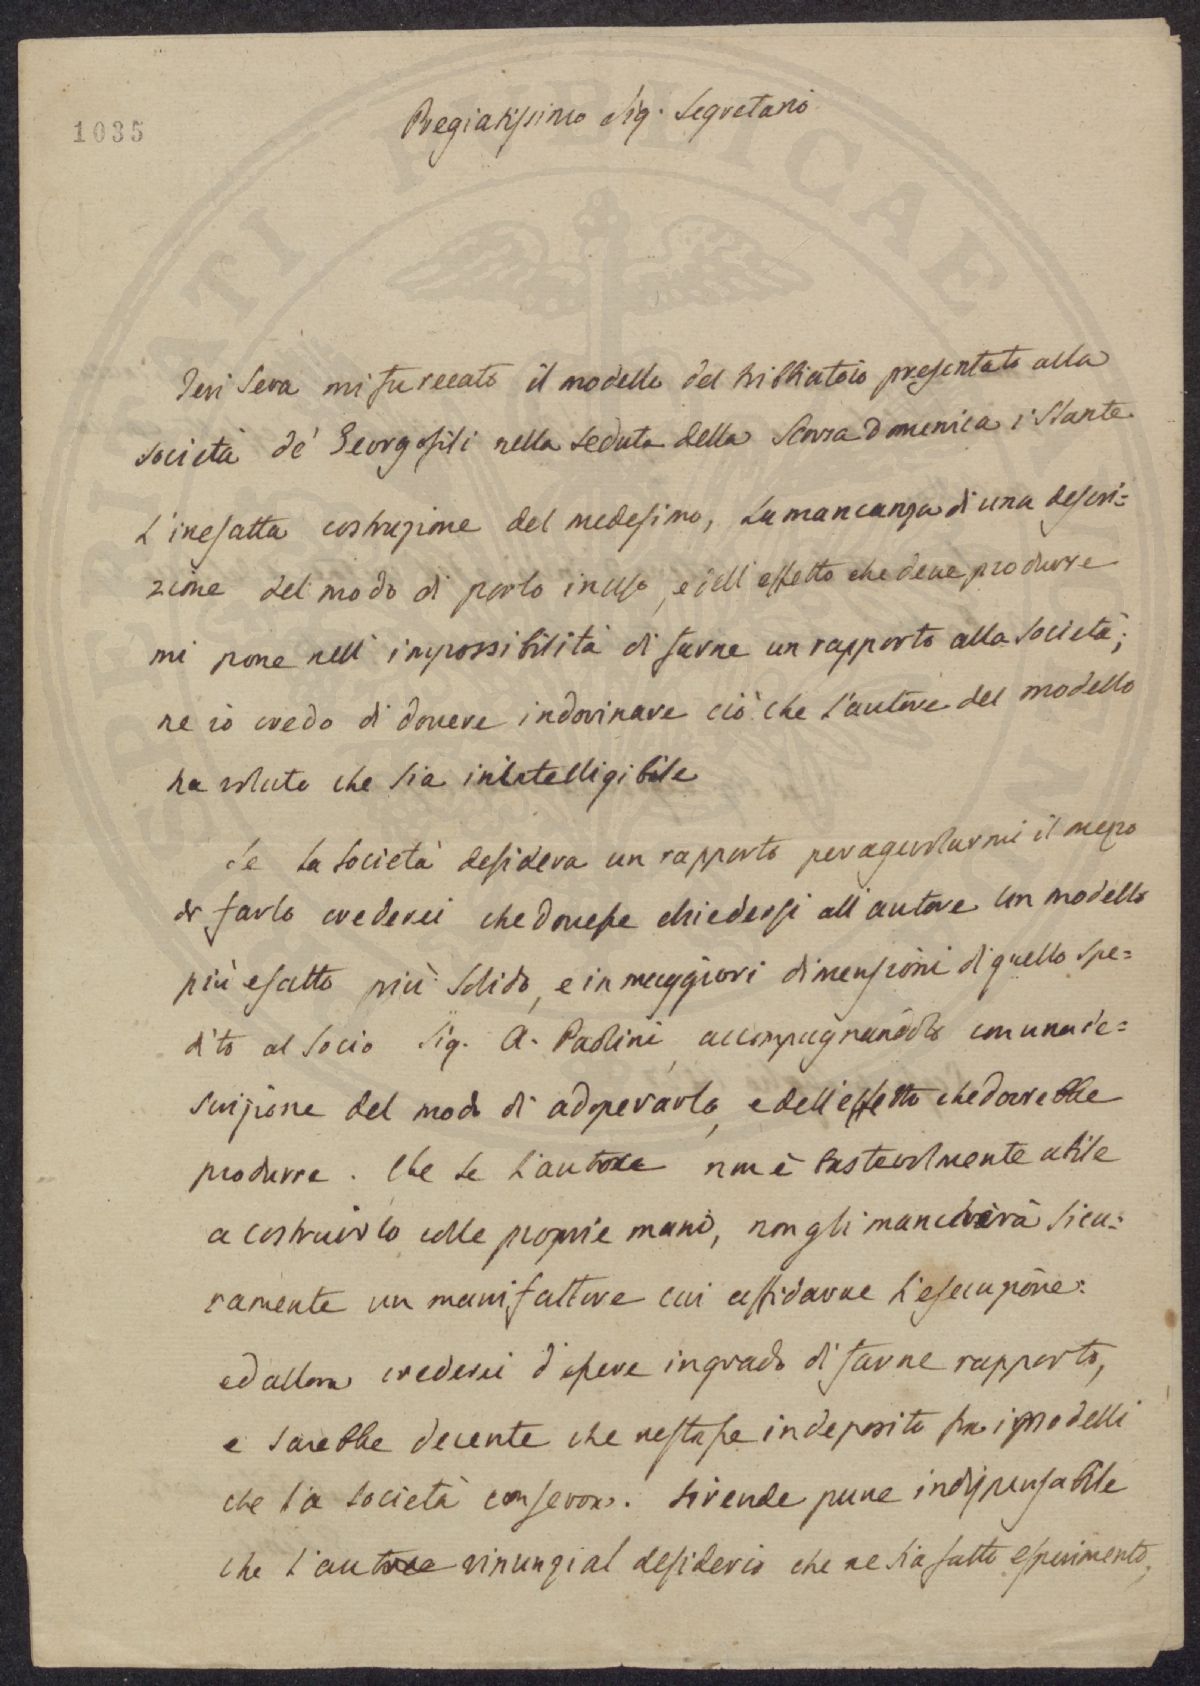 1035
Pregiatissimo Sig. Segretario
Jeri Sera mi fu recato il modello del tribbiatoio presentato alla
società de' Georgofili nella seduta della Scorsa Domenica istante
L'inesatta costruzione del medesimo, La mancanza di una descri=
zione del modo di porlo in uso, e dell'effetto che deve produrre
mi pone nell'impossibilità di farne un rapporto alla Società;
ne io credo di dovere indovinare ciò che l'autore del modello
ha voluto che sia inintelligibile
Se La Società desidera un rapporto per agevolarmi il mezzo
di farlo crederei che dovesse chiedersi all'autore un modello
più esatto più Solido, e in maggiori dimensioni di quello spe=
dito al Socio Sig. A. Paolini, accompagnandolo con una de=
scrizione del modo di adoperarlo, e dell'effetto che dovrebbe
produrre. Che se l'autore non è bastevolmente abile
a costruirlo colle proprie mani, non gli mancherà Sicu=
ramente un manifattore cui affidarne l'esecuzione:
ed allora crederei d'essere in grado di farne rapporto,
e sarebbe decente che restasse in deposito fra i modelli
che la Società conserva. Si rende pure indispensabile
che l'autore rinunzi al desiderio che ne sia fatto esperimento,